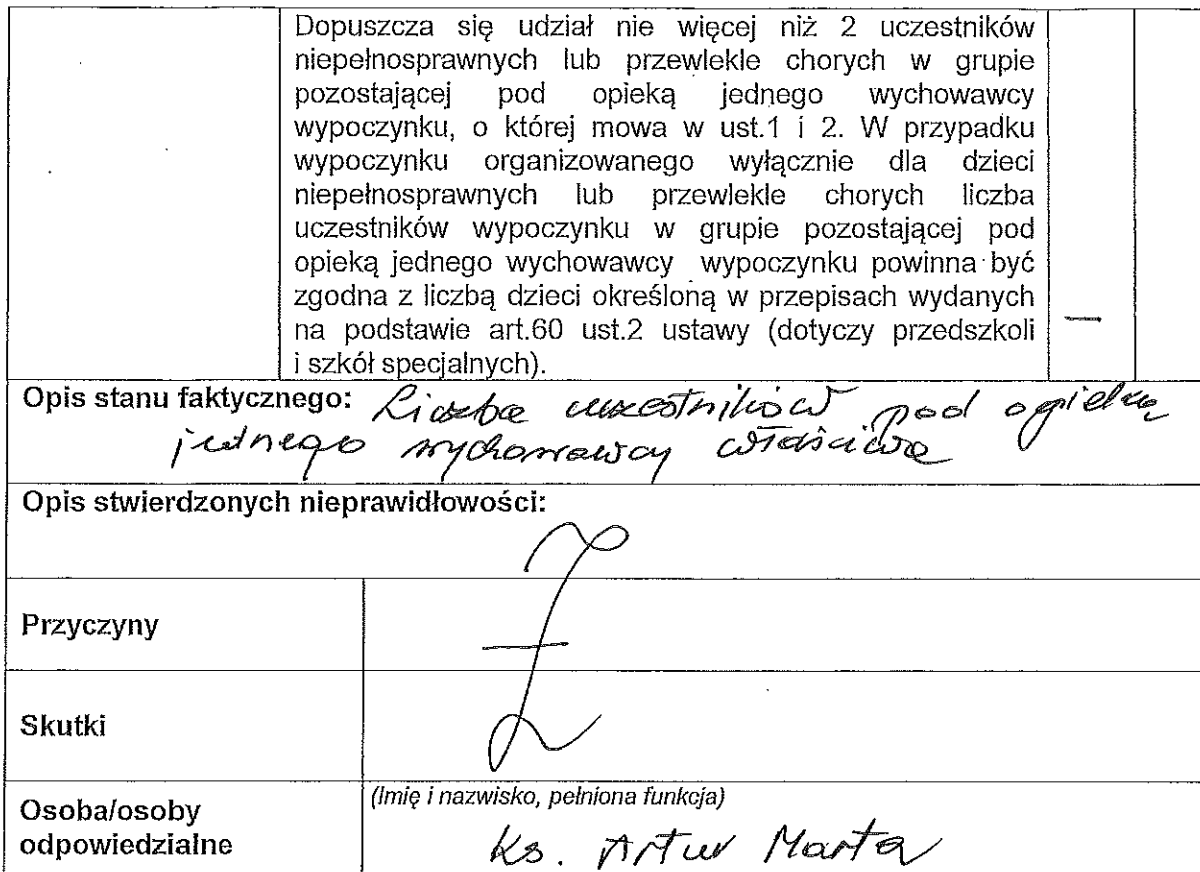 Dopuszcza się udział nie więcej niż 2 uczestników
niepełnosprawnych lub przewlekle chorych w grupie
pozostającej pod opieką jednego wychowawcy
wypoczynku, o której mowa w ust.1 i 2. W przypadku
wypoczynku organizowanego wyłącznie dla dzieci
niepełnosprawnych lub przewlekle chorych liczba
uczestników wypoczynku w grupie pozostającej pod
opieką jednego wychowawcy wypoczynku powinna być
zgodna z liczbą dzieci określoną w przepisach wydanych
na podstawie art.60 ust.2 ustawy (dotyczy przedszkoli
i szkół specjalnych).
—
Opis stanu faktycznego: Liczba uczestników pod opieką
jednego wychowawcy właściwa
Opis stwierdzonych nieprawidłowości:
Przyczyny
Skutki
Osoba/osoby
odpowiedzialne
(Imię i nazwisko, pełniona funkcja)
Ks. Artur Marta